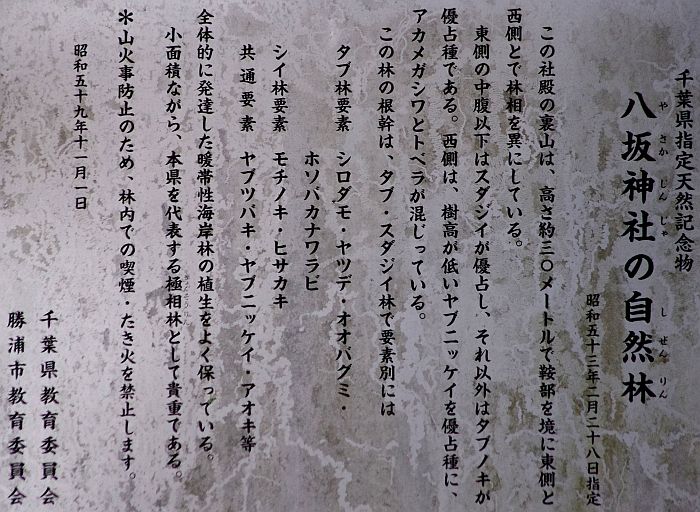 千葉県指定天然記念物
八坂神社の自然林
やさかじんじゃ しぜんりん
昭和五十三年二月二十八日指定
この社殿の裏山は、高さ約三〇メートルで鞍部を境に東側と
西側とで林相を異にしている。
東側の中腹以下はスダジイが優占し、それ以外はタブノキが
優占種である。西側は、樹高が低いヤブニッケイを優占種に、
アカメガシワとトベラが混じっている。
この林の根幹は、タブ・スダジイ林で要素別には
タブ林要素 シロダモ・ヤツデ・オオバグミ・
ホソバカナワラビ
シイ林要素 モチノキ・ヒサカキ
共通要素 ヤブツバキ・ヤブニッケイ・アオキ等
全体的に発達した暖帯性海岸林の植生をよく保っている。
小面積ながら、本県を代表する極相林として貴重である。
きょくそうりん
＊山火事防止のため、林内での喫煙・たき火を禁止します。
昭和五十九年十一月一日
千葉県教育委員会
勝浦市教育委員会